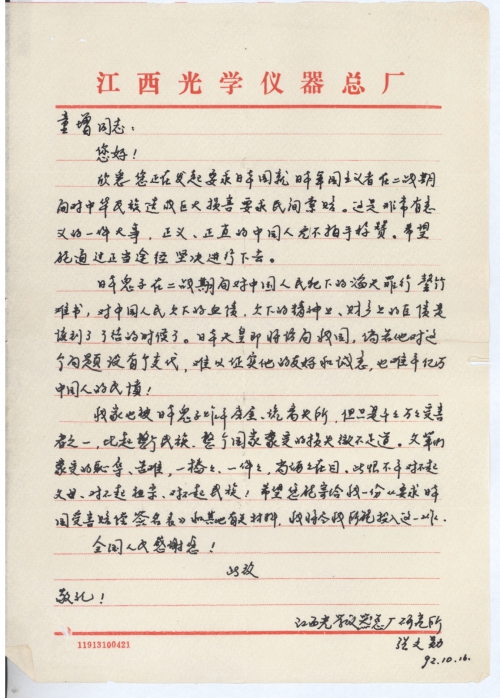 江西光学仪器总厂
童增同志：
您好！
欣悉您正在发起要求日本国就日本军国主义者在二战期
间对中华民族造成巨大损害要求民间索赔。这是非常有意
义的一件大事，正义、正直的中国人无不拍手称赞。希望
能通过正当途径坚决进行下去。
日本鬼子在二战期间对中国人民犯下的滔天罪行罄竹
难书，对中国人民欠下的血债，欠下的精神上、财产上的巨债是
该到了了结的时候了。日本天皇即将访问我国，倘若他对这
个问题没有个交代，难以证实他的友好和诚意，也难平亿万
中国人的民愤！
我家也被日本鬼子，但只是千千万万受害
者之一，比起整个民族、整个国家蒙受的损失微不足道。父辈们
蒙受的耻辱、苦难，一桩桩、一件件，尚历历在目，此恨不平对不起
父母、对不起祖宗、对不起民族！希望您能寄给我一份《要求日本
国受害赔偿签名表》和其他有关材料，我将尽我所能投入这一工作。
全国人民感谢您！
此致
敬礼！
江西光学仪器总厂研究所
张文勋
92.10.16.
11913100421